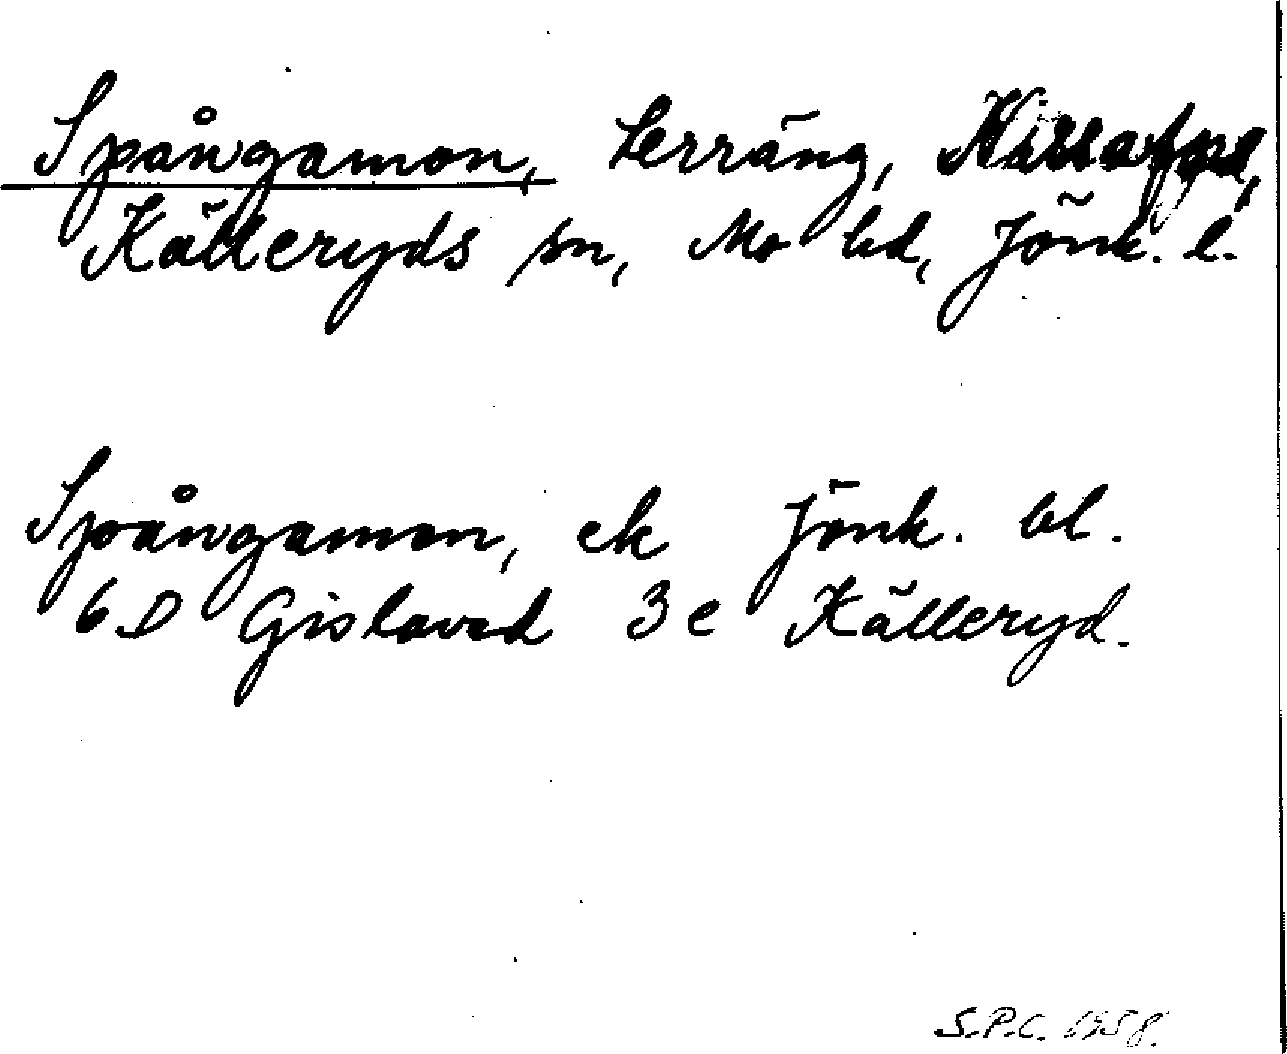 Spångamon, terräng, Nissafors,
Källeryds sn, Mo hd, Jönk. l.
Spångamon, ek Jönk. bl.
6D Gislaved 3e Källeryd.
S.P.C. 1958.